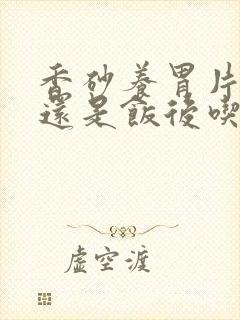 香砂養胃片
還是飯後喫
虛空渡